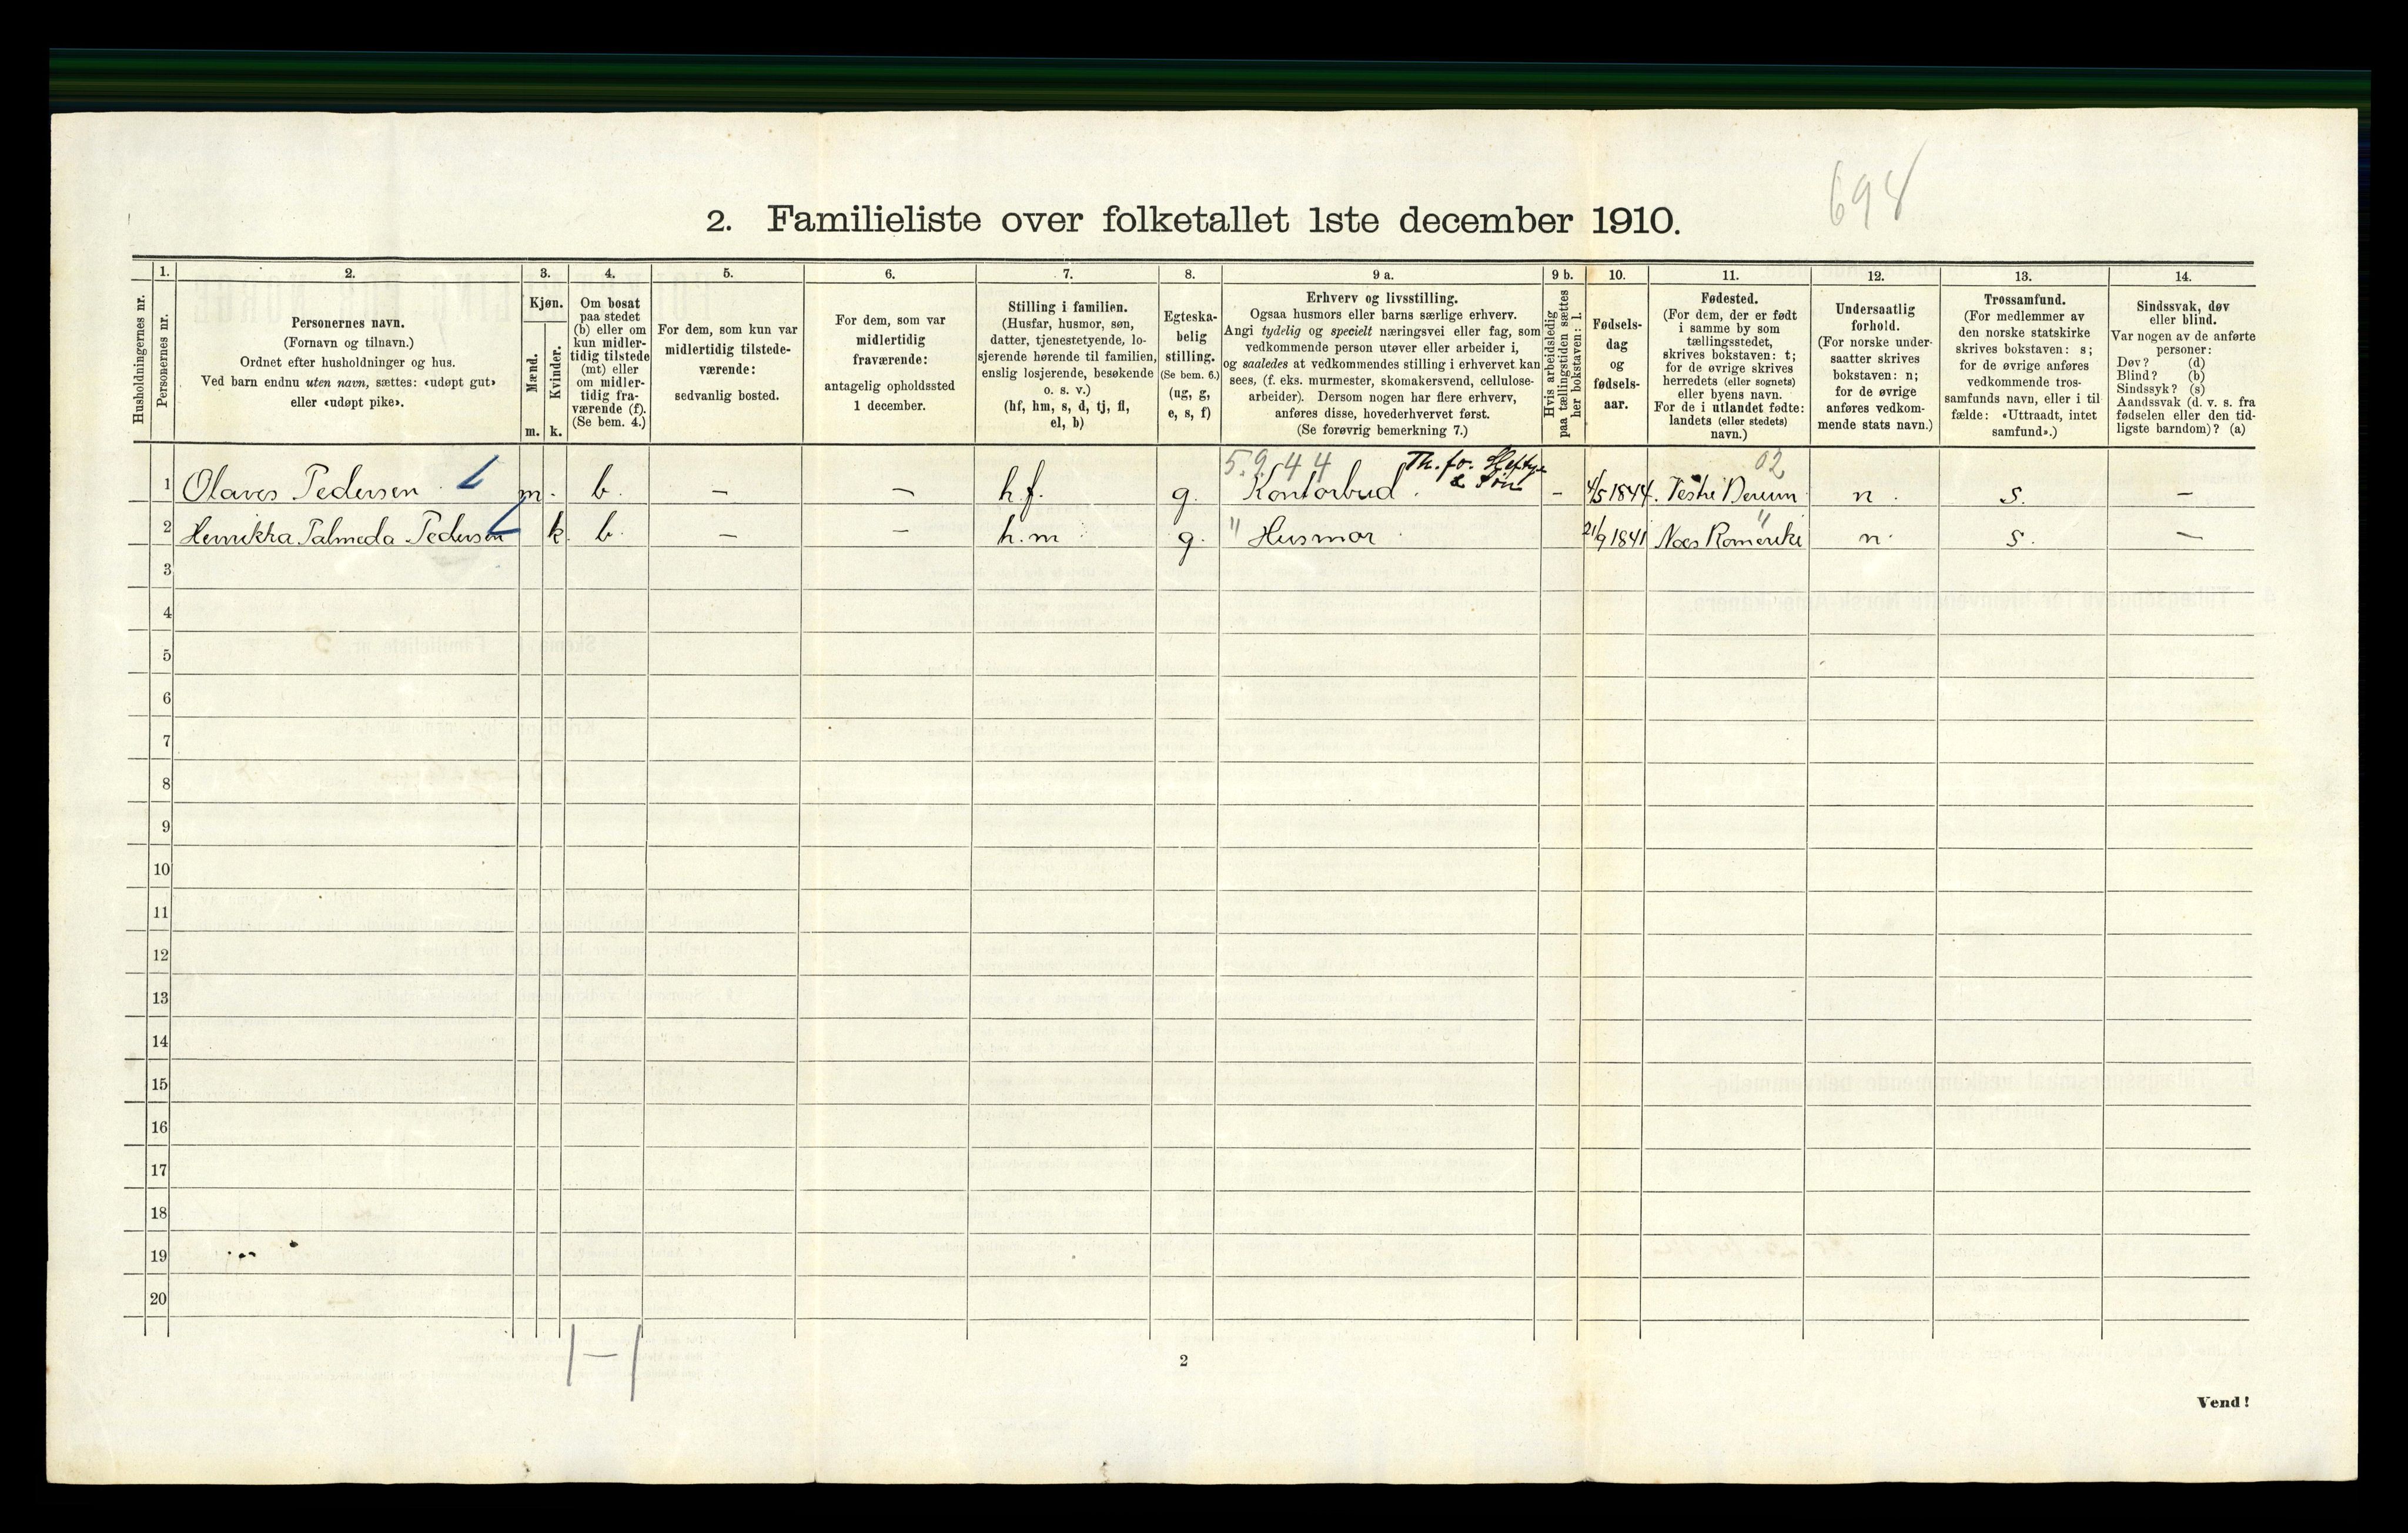 694
2. Familieliste over folketallet 1ste december 1910.
Husholdningernes nr.
1.
Personernes nr.
2.
Personernes navn.
(Fornavn og tilnavn.)
Ordnet efter husholdninger og hus.
Ved barn endnu uten navn, sættes: «udøpt gut»
eller «udøpt pike».
3.
Kjøn.
Mænd.
Kvinder.
m. k.
4.
Om bosat
paa stedet
(b) eller om
kun midler-
tidig tilstede
(mt) eller
om midler-
tidig fra-
værende (f).
(Se bem. 4.)
5.
For dem, som kun var
midlertidig tilstede-
værende:
sedvanlig bosted.
6.
For dem, som var
midlertidig
fraværende:
antagelig opholdssted
1 december.
7.
Stilling i familien.
(Husfar, husmor, søn,
datter, tjenestetyende, lo-
sjerende hørende til familien,
enslig losjerende, besøkende
o. s. v.)
(hf, hm, s, d, tj, fl,
el, b)
8.
Egteska-
belig
stilling.
(Se bem. 6.)
(ug, g,
e, s, f)
9 a.
Erhverv og livsstilling.
Ogsaa husmors eller barns særlige erhverv.
Angi tydelig og specielt næringsvei eller fag, som
vedkommende person utøver eller arbeider i,
og saaledes at vedkommendes stilling i erhvervet kan
sees, (f. eks. murmester, skomakersvend, cellulose-
arbeider). Dersom nogen har flere erhverv,
anføres disse, hovederhvervet først.
(Se forøvrig bemerkning 7.)
9 b.
Hvis arbeidsledig
paa tællingstiden sættes
her bokstaven: l.
10.
Fødsels-
dag
og
fødsels-
aar.
11.
Fødested.
(For dem, der er født
i samme by som
tællingsstedet,
skrives bokstaven: t;
for de øvrige skrives
herredets (eller sognets)
eller byens navn.
For de i utlandet fødte:
landets (eller stedets)
navn.)
12.
Undersaatlig
forhold.
(For norske under-
saatter skrives
bokstaven: n;
for de øvrige
anføres vedkom-
mende stats navn.)
13.
Trossamfund.
(For medlemmer av
den norske statskirke
skrives bokstaven: s;
for de øvrige anføres
vedkommende tros-
samfunds navn, eller i til-
fælde: «Uttraadt, intet
samfund».)
14.
Sindssvak, døv
eller blind.
Var nogen av de anførte
personer:
Døv? (d)
Blind? (b)
Sindssyk? (s)
Aandssvak (d. v. s. fra
fødselen eller den tid-
ligste barndom)? (a)
5.9.44 Th. Jo. Heftye & Søn 02
1 Olaves Pedersen m. b. — — h.f. g. Kontorbud. - 4/5 1844. Vestre Berum n. s. —
2 Henrikka Palmeda Pedersen k. b. — — h.m g. " Husmor 21/9 1841 Næs Romerike " n. s. —
3
4
5
6
7
8
9
10
11
12
13
14
15
16
17
18
19
20
1—1
2
Vend!